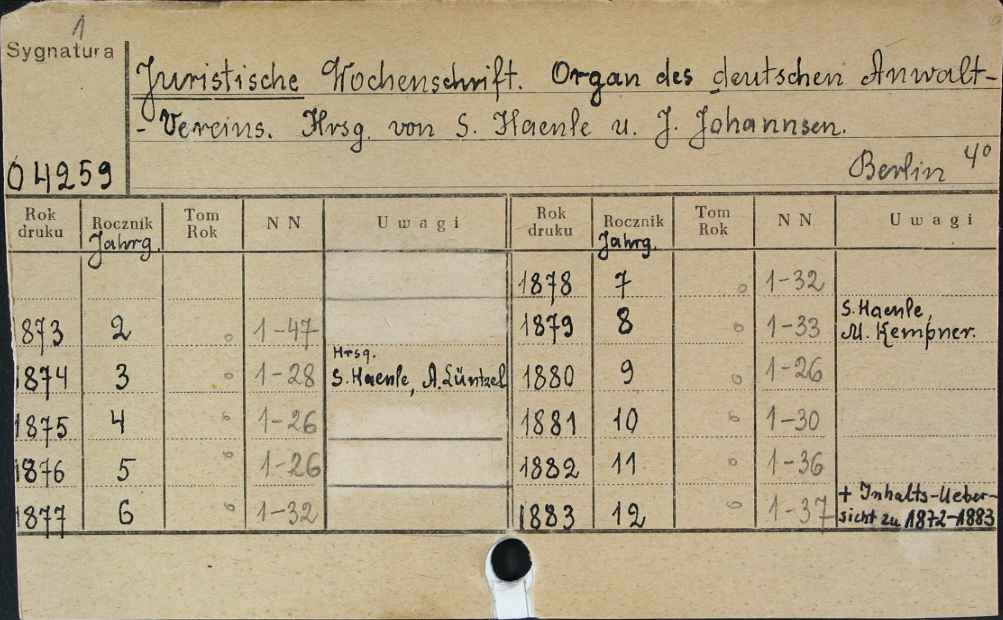 1
Sygnatura
04259
Juristische Wochenschrift. Organ des deutschen Anwalt-
- Vereins. Hrsg. von S. Haenle u. J. Johannsen.
Berlin 4°
Rok druku Rocznik Jahrg. Tom Rok N N Uwagi Rok druku Rocznik Jahrg. Tom Rok N N Uwagi
1878 7 o 1-32
1873 2 o 1-47 1879 8 o 1-33 S. Haenle, M. Kempner.
1874 3 o 1-28 Hrsg. S. Haenle, A. Lüntzel 1880 9 o 1-26
1875 4 o 1-26 1881 10 o 1-30
1876 5 o 1-26 1882 11 o 1-36
1877 6 o 1-32 1883 12 o 1-37 + Inhalts-Ueber-
sicht zu 1872-1883